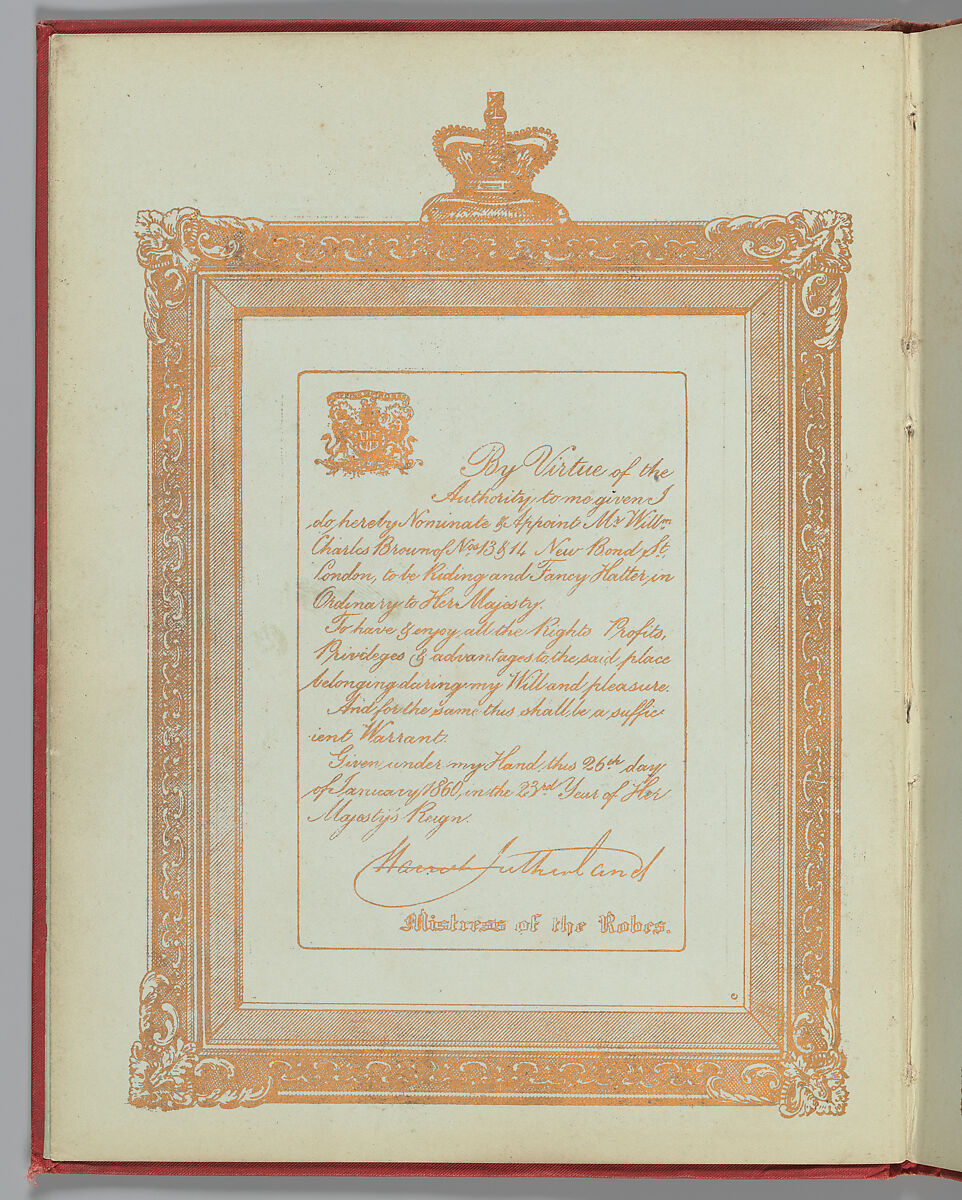 By Virtue of the
Authority to me given I
do hereby Nominate & Appoint Mr. Willm
Charles Brown of Nos 13 & 14 New Bond St.
London, to be Riding and Fancy Hatter, in
Ordinary to Her Majesty.
To have & enjoy all the Rights Profits,
Privileges & advantages to the said place
belonging during my Will and pleasure.
And for the same this shall be a suffic
ient Warrant.
Given under my Hand, this 26th day
of January 1860, in the 23rd Year of Her
Majesty's Reign.
Harriet Sutherland
Mistress of the Robes.